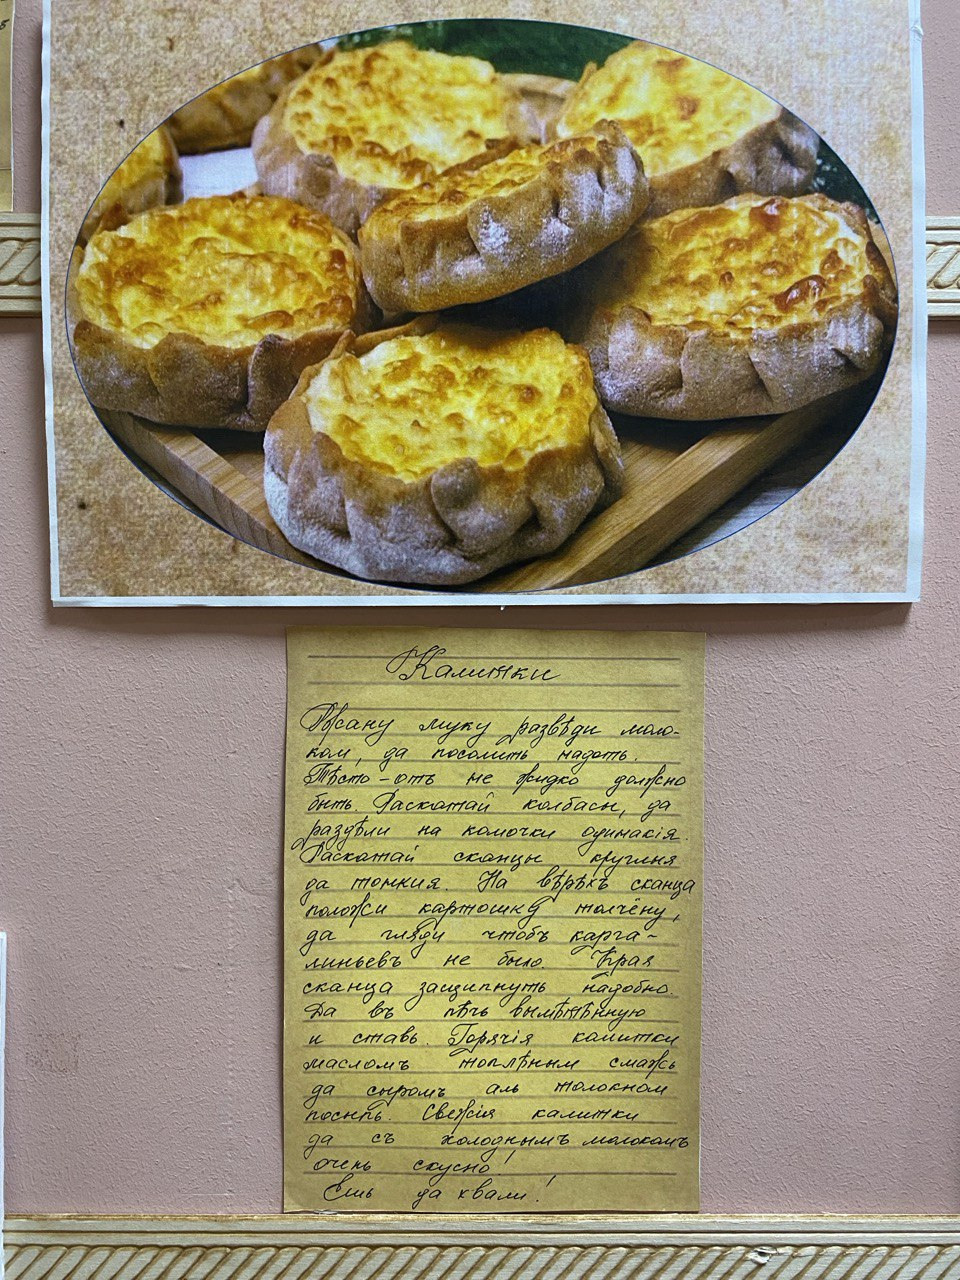 Калитки
Ржану муку развѣди моло-
ком, да посолить надоть.
Тѣсто-отъ не жидко должно
быть. Раскатай колбасы, да
раздѣли на комочки одинакія.
Раскатай сканцы круглыя
да тонкия. На вѣрьхъ сканца
положи картошку толчёну,
да гляди чтобъ карга-
линьевъ не было. Края
сканца защипнуть надобно.
Да въ пѣчь вымѣтѣнную
и ставь. Горячія калитки
масломъ топлѣным смажь
да сыромъ аль толокном
посыпь. Свежія калитки
да съ холоднымъ молокомъ
очень скусно!
Ешь да хвали!